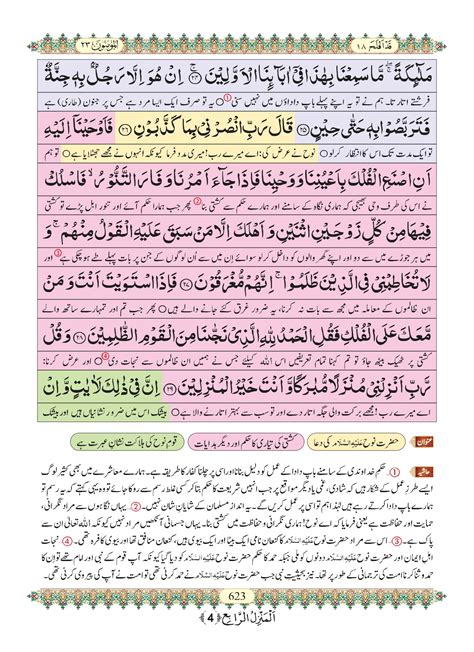 قَدْاَفْلَحَ ١٨
اَلْمُؤْمِنُوْن ٢٣
مَلٰٓىٕكَةً ۖۚ مَّا سَمِعْنَا بِهٰذَا فِیْۤ اٰبَآىٕنَا الْاَوَّلِیْنَ ۚ﴿۲۴﴾ اِنْ هُوَ اِلَّا رَجُلٌۢ بِهٖ جِنَّةٌ
فرشتے اتارتا۔ ہم نے تو یہ اپنے پہلے باپ داداؤں میں نہیں سنی ① یہ تو صرف ایک ایسا مرد ہے جس پر جنون (طاری) ہے
فَتَرَبَّصُوْا بِهٖ حَتّٰى حِیْنٍ ﴿۲۵﴾ قَالَ رَبِّ انْصُرْنِیْ بِمَا كَذَّبُوْنِ ﴿۲۶﴾ فَاَوْحَیْنَاۤ اِلَیْهِ
تو ایک مدت تک اس کا انتظار کرلو ○ نوح نے عرض کی: اے میرے رب! میری مدد فرما کیونکہ انہوں نے مجھے جھٹلایا ہے ○ تو ہم
اَنِ اصْنَعِ الْفُلْكَ بِاَعْیُنِنَا وَ وَحْیِنَا فَاِذَا جَآءَ اَمْرُنَا وَ فَارَ التَّنُّوْرُ ۙ فَاسْلُكْ
نے اس کی طرف وحی بھیجی کہ ہماری نگاہ کے سامنے اور ہمارے حکم سے کشتی بنا ② پھر جب ہمارا حکم آئے اور تنور ابل پڑے تو کشتی
فِیْهَا مِنْ كُلٍّ زَوْجَیْنِ اثْنَیْنِ وَ اَهْلَكَ اِلَّا مَنْ سَبَقَ عَلَیْهِ الْقَوْلُ مِنْهُمْ ۚ وَ
میں ہر جوڑے میں سے دو اور اپنے گھر والوں کو داخل کرلو سوائے اِن میں سے اُن لوگوں کے جن پر بات پہلے طے ہوچکی ہے ③ اور
لَا تُخَاطِبْنِیْ فِی الَّذِیْنَ ظَلَمُوْا ۚ اِنَّهُمْ مُّغْرَقُوْنَ ﴿۲۷﴾ فَاِذَا اسْتَوَیْتَ اَنْتَ وَ مَنْ
ظالموں کے معاملہ میں مجھ سے بات نہ کرنا، یہ ضرور غرق کئے جانے والے ہیں ○ پھر جب تم اور تمہارے ساتھ والے
مَّعَكَ عَلَى الْفُلْكِ فَقُلِ الْحَمْدُ لِلّٰهِ الَّذِیْ نَجّٰىنَا مِنَ الْقَوْمِ الظّٰلِمِیْنَ ﴿۲۸﴾ وَ قُلْ
کشتی پر ٹھیک بیٹھ جاؤ تو تم کہنا تمام تعریفیں اس اللہ کیلئے جس نے ہمیں ان ظالموں سے نجات دی ④ اور عرض کرنا:
رَّبِّ اَنْزِلْنِیْ مُنْزَلًا مُّبٰرَكًا وَّ اَنْتَ خَیْرُ الْمُنْزِلِیْنَ ﴿۲۹﴾ اِنَّ فِیْ ذٰلِكَ لَاٰیٰتٍ وَّ اِنْ
اے میرے رب! مجھے برکت والی جگہ اتار دے اور تو سب سے بہتر اتارنے والا ہے ○ بیشک اس میں ضرور نشانیاں ہیں اور بیشک
عنوان حضرت نوح عَلَیْہِ السَّلَام کی دعا کشتی کی تیاری کا حکم اور دیگر ہدایات قومِ نوح کی ہلاکت نشانِ عبرت ہے
حاشیہ ① حکمِ خداوندی کے سامنے باپ دادا کے عمل کو دلیل بنانا اور اسی پر چلنا کفار کا طریقہ ہے۔ ہمارے معاشرے میں بھی کثیر لوگ
ایسے طرزِ عمل کے شکار ہیں کہ شادی، غمی یا دیگر مواقع پر جب انہیں شریعت کا حکم بتا کر کسی غلط رسم سے روکا جائے تو وہ یہی کہتے کہ یہ رسم تو
ہمارے باپ دادا کرتے رہے ہیں لہٰذا ہم تو اسی پر عمل کریں گے۔ یہ انداز مسلمان کے شایانِ شان نہیں۔ ② یہاں نگاہوں سے مراد نگرانی و
حفاظت ہے یعنی فرمایا کہ اے نوح! ہماری نگرانی و حفاظت میں کشتی بنا۔ یہاں جسمانی آنکھیں مراد نہیں کیونکہ اللہ تعالیٰ ان سے
پاک ہے۔ ③ اس سے مراد حضرت نوح عَلَیْہِ السَّلَام کا کنعان نامی ایک بیٹا اور ایک بیوی ہے، کنعان منافق تھا اور بیوی کافرہ تھی۔ ④ نجات
اہلِ ایمان اور حضرت نوح عَلَیْہِ السَّلَام دونوں کو ملی جبکہ حمد کا حکم حضرت نوح عَلَیْہِ السَّلَام کو دیا گیا کیونکہ آپ قوم کے امام تھے تو ان کا
حمد و ثنا کرنا امت کی ترجمانی کے طور پر تھا۔ نیز بحیثیت نبی جب حضرت نوح عَلَیْہِ السَّلَام نے حمد کرنی تھی تو امت نے آپ کی پیروی کرنی تھی۔
623
اَلْمَنْزِلُ الرَّابِع ﴿4﴾